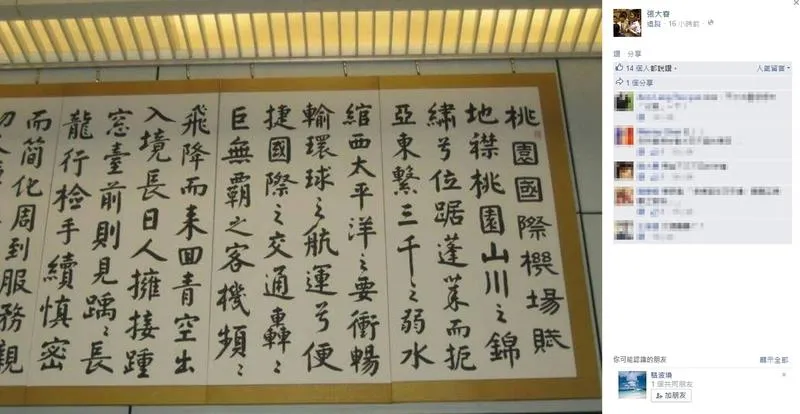 桃園國際機場賦
地襟桃園山川之錦
繡兮位踞蓬萊而扼
亞東繫三千之弱水
綰西太平洋之要衝暢
輸環球之航運兮便
捷國際之交通轟〻
巨無霸之客機頻〻
飛降而来回青空出
入境長日人擁接踵
窓臺前則見踽〻長
龍行檢手續慎密
而简化周到服務親
張大春
追蹤 · 16 小時前 ·
讚 · 分享
14 個人都說讚。
人氣留言
1 個分享
你可能認識的朋友
顯示全部
駱波墝
1 個共同朋友
加朋友